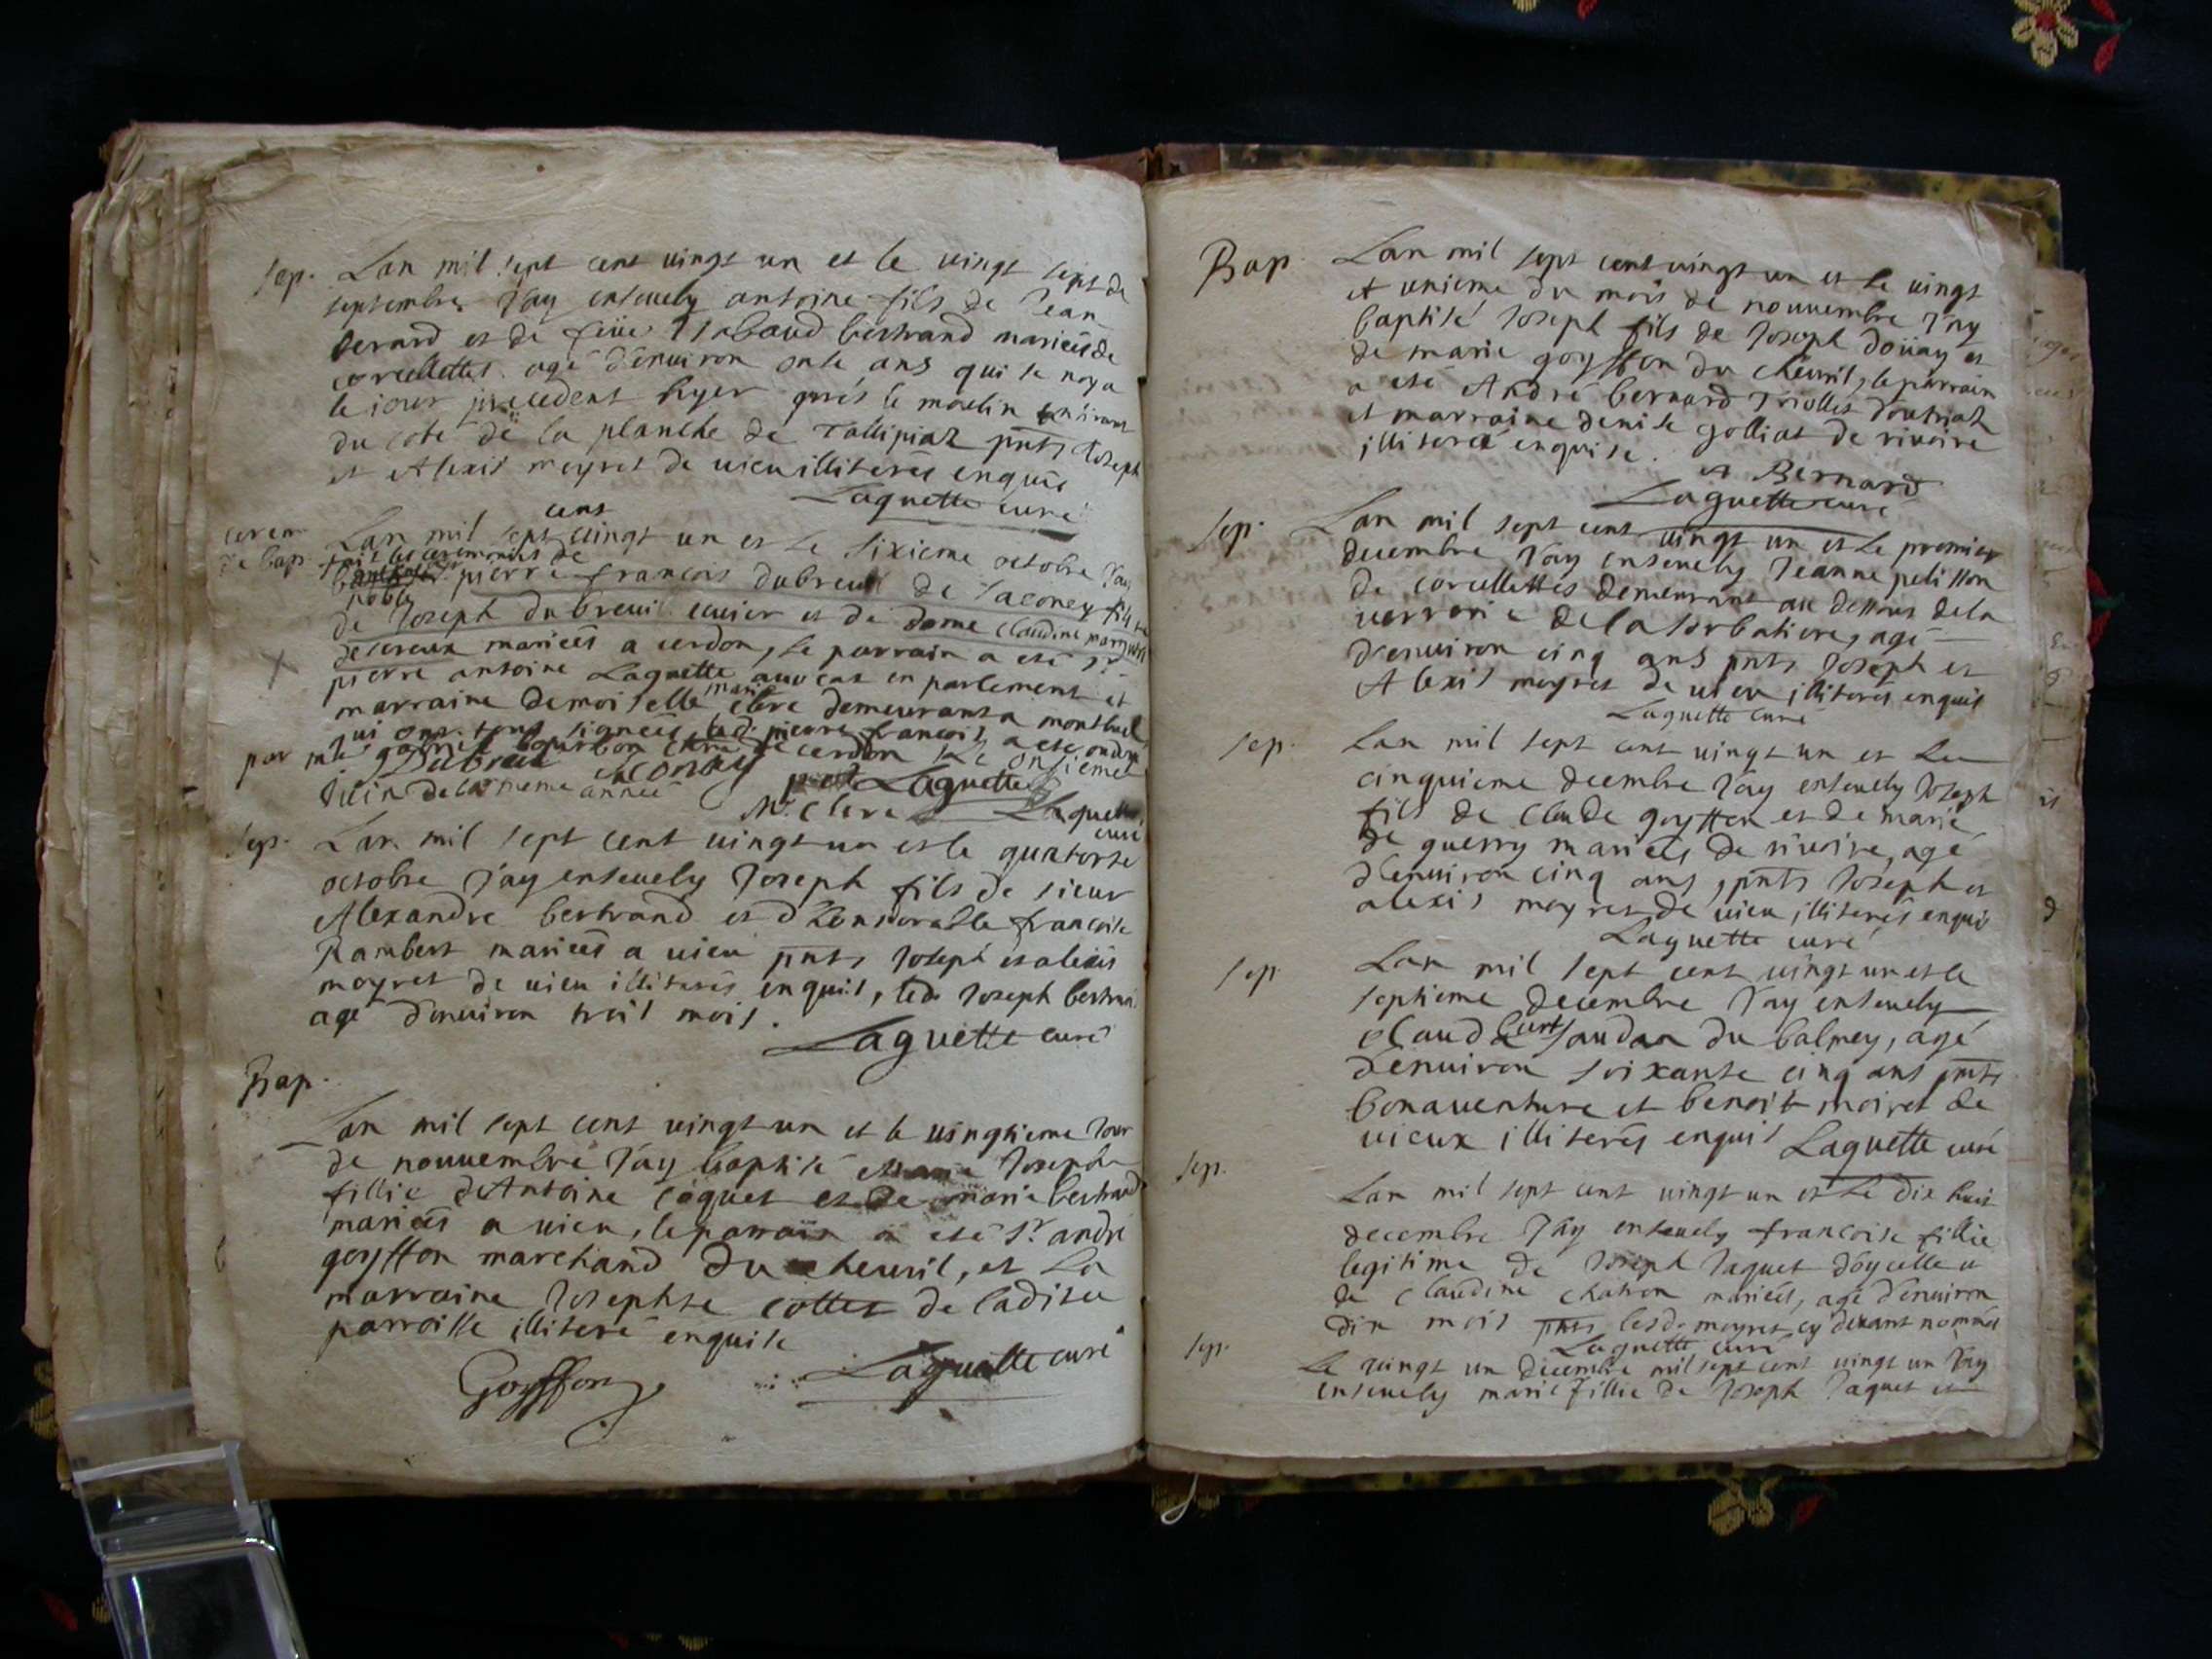 sep. Lan mil sept cent vingt un et le vingt sept de
septembre Jay ensevely antoine fils de Jean
berard et de feüe bertrand mariés de
corcellettes agé d'environ onse ans qui se noya
le iour precedent hyer aprés le moulin
du coté de la planche de pnts Joseph
et Alexis moyret de vieu illiterés enquis
Laguette curé
cerem
de bap.
Lan mil sept cens vingt un et le sixieme octobre Jay
fait les ceremonies de
pierre francois dubreuil de Saconey fils
noble
de Joseph du breuil ecuier et de dame claudine
mariées a cerdon, le parrain a eté sr
pierre antoine Laguette avocat en parlement et
marraine demoiselle marie clere demeurant a montluel
qui ont tous signées, led. pierre francois a eté
par gabriel bourbon curé de cerdon le onsieme
Juin de la meme année
Dubreuil Laguette
M. Clere Laguette
curé
Sep. Lan mil sept cent vingt un et le quatorse
octobre J'ay ensevely Joseph fils de sieur
Alexandre bertrand et d'honnorable francoise
Rambert mariées a vieu pnts Joseph et alexis
moyret de vieu illiterés enquis, led. Joseph bertrand
agé d'environ trois mois.
Laguette curé
Bap.
Lan mil sept cent vingt un et le vingtieme Jour
de nouvembre J'ay baptisé Josephe
fillie d'Antoine coquet et de marie bertrand
mariées a vieu, le parrain a eté Sr. andré
goyffon marchand du chevril, et la
marraine Josephte collet de ladite
parroisse illiteré enquise
Goyffon Laguette curé
Bap. Lan mil sept cent vingt un et le vingt
et unieme du mois de nouvembre J'ay
baptisé Joseph fils de Joseph doüay et
de marie goyffon du chevril, le parrain
a eté André bernard
et marraine denise golliat de rivoire
illiteré enquise.
A Bernard
Laguette curé
Sep. Lan mil sept cent vingt un et le premier
decembre J'ay ensevely Jeanne pelisson
de corcellettes demeurant au dessous de la
verrerie de la agé
d'environ cinq ans pnts Joseph et
Alexis moyret de vieu illiterés enquis
Laguette curé
sep. Lan mil sept cent vingt un et le
cinquieme decembre J'ay ensevely Joseph
fils de Claude goyffon et de marie
de guerry mariées de rivoire, agé
d'environ cinq ans, pnts Joseph et
alexis moyret de vieu illiterés enquis
Laguette curé
sep. Lan mil sept cent vingt un et le
septieme decembre J'ay ensevely
Claud du balmey, agé
d'environ soixante cinq ans pnts
bonaventure et benoit moiret de
vieux illiterés enquis Laguette curé
Sep.
Lan mil sept cent vingt un et le dix huit
decembre J'ay ensevely francoise fillie
legitime de Joseph Jaquet d'oycelle et
de Claudine chatron mariées, agé d'environ
dix mois pnts lesd. moyret cy devant nommés
Laguette curé
Sep. Le vingt un decembre mil sept cent vingt un J'ay
ensevely marie fillie de Joseph Jaquet et